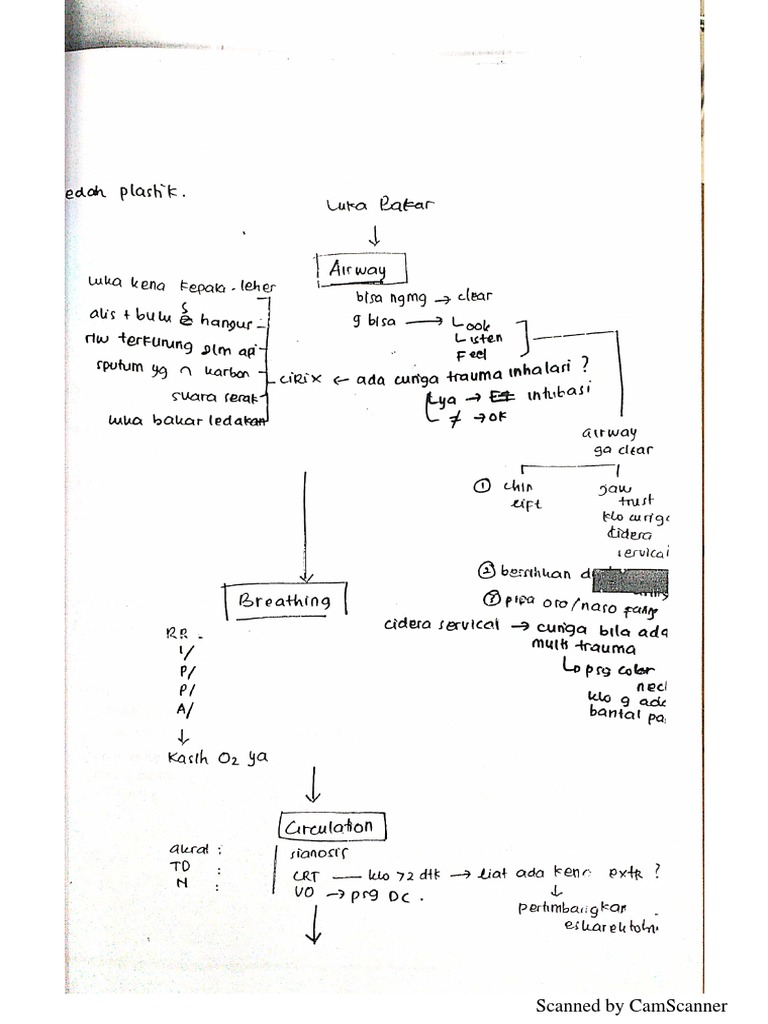 edah plastik.
Luka Bakar
Airway
bisa ngmg → clear
g bisa → Look
Listen
Feel
luka kena kepala - leher
alis + bulu hangus
riw terkurung dlm api
sputum yg karbon
suara serak
luka bakar ledakan
ciRix ← ada curiga trauma inhalasi ?
ya → intubasi
≠ → ok
airway
ga clear
① chin
lift
jaw
trust
klo curiga
cidera
servical
② bersihkan d
pipa oro/naso farng
cidera servical → curiga bila ada
multi trauma
prg color
nec
klo g ada
bantal pa
Breathing
RR
I/
P/
P/
A/
↓
Kasih O2 ya
Circulation
akral :
TD :
N :
sianosis
CRT — klo 72 dtk → liat ada kena extr ?
VO → prg DC .
↓
pertimbangkan
eskarektomi
Scanned by CamScanner